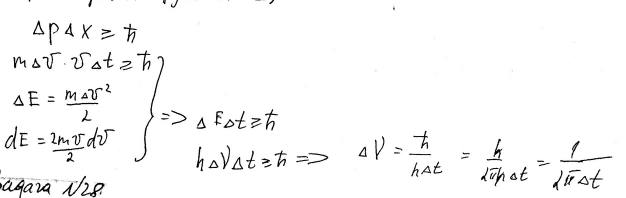 Δp Δx ≥ ħ
mΔv · vΔt ≥ ħ
ΔE = mΔv²/2
dE = 2mv/2 dv
=> ΔEΔt ≥ ħ
hΔνΔt ≥ ħ => Δν = ħ/hΔt = h/2πhΔt = 1/2πΔt
задача №28.